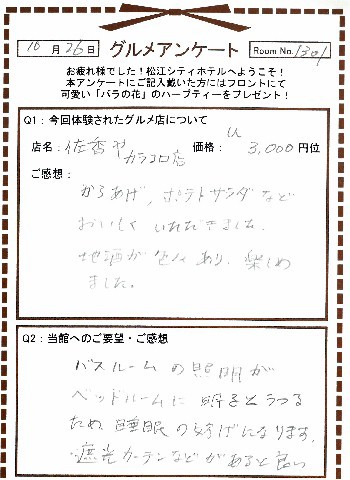 10月26日 グルメアンケート Room No. 1301
お疲れ様でした！松江シティホテルへようこそ！
本アンケートにご記入戴いた方にはフロントにて
可愛い「バラの花」のハーブティーをプレゼント！
Q1：今回体験されたグルメ店について
店名：佐香や カラコロ店 価格： 3,000円位
ご感想：
からあげ, ポテトサラダなど
おいしくいただきました.
地酒が色々あり, 楽しめ
ました.
Q2：当館へのご要望・ご感想
バスルームの照明が
ベッドルームに うつる
ため 睡眠の妨げになります.
遮光カーテンなどがあると良い